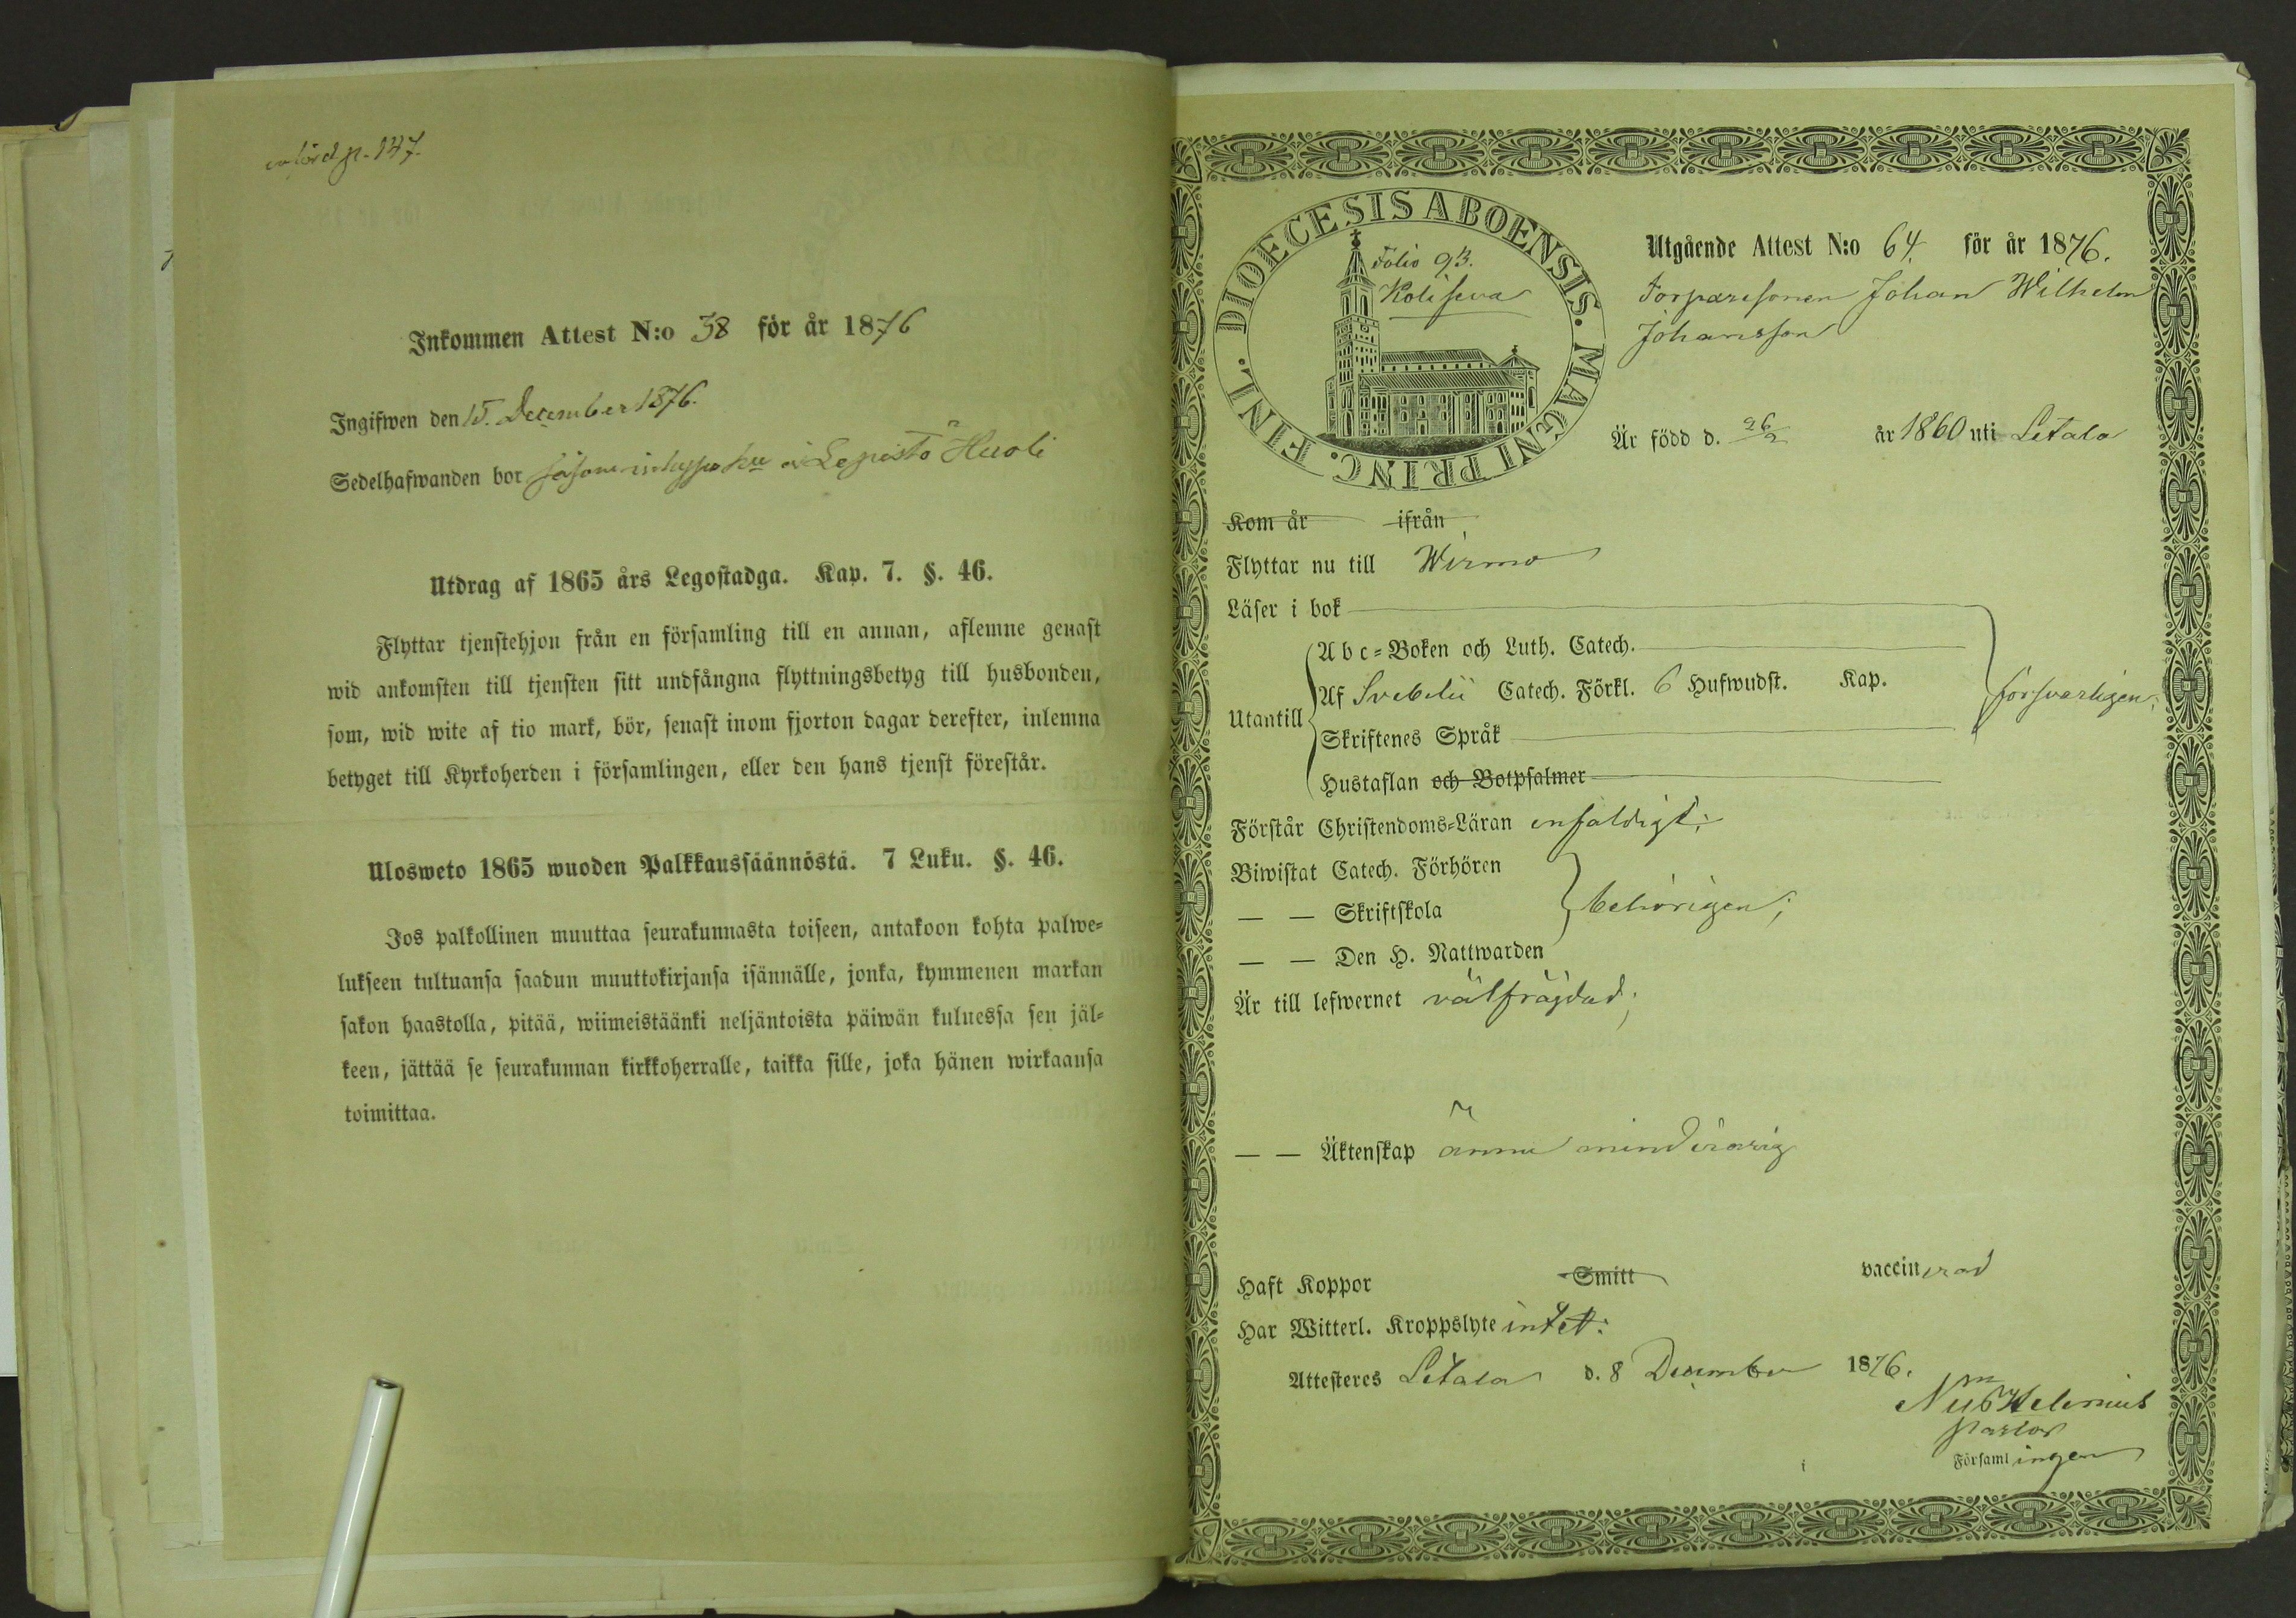 införd p. 147.
Inkommen Attest N:o 38 för år 1876
Ingifwen den 15. December 1876.
Sedelhafwanden bor såsom inhyses på Lepistö Huoli
Utdrag af 1865 års Legostadga. Kap. 7. §. 46.
Flyttar tjenstehjon från en församling till en annan, aflemne genast
wid ankomsten till tjensten sitt undfångna flyttningsbetyg till husbonden,
som, wid wite af tio mark, bör, senast inom fjorton dagar derefter, inlemna
betyget till Kyrkoherden i församlingen, eller den hans tjenst förestår.
Ulosweto 1865 wuoden Palkkaussäännöstä. 7 Luku. §. 46.
Jos palkollinen muuttaa seurakunnasta toiseen, antakoon kohta palwe-
lukseen tultuansa saadun muuttokirjansa isännälle, jonka, kymmenen markan
sakon haastolla, pitää, wiimeistäänki neljäntoista päiwän kuluessa sen jäl-
keen, jättää se seurakunnan kirkkoherralle, taikka sille, joka hänen wirkaansa
toimittaa.
DIOECESIS ABOENSIS. MAGNI PRINC. FINL.
Folio 93.
Koliseva
Utgående Attest N:o 64. för år 1876.
Torparesonen Johan Wilhelm
Johansson
Är född d. 26/2 år 1860 uti Letala
Kom år ifrån
Flyttar nu till Wirmo
Läser i bok
Abc-Boken och Luth. Catech.
Utantill Af Svebelii Catech. Förkl. 6 Hufwudst. Kap. försvarligen;
Skriftenes Språk
Hustaflan och Botpsalmer
Förstår Christendoms-Läran enfaldigt;
Biwistat Catech. Förhören
— — Skriftskola behörigen;
— — Den H. Nattwarden
Är till lefwernet välfrägdad;
— — Äktenskap ännu minderårig
Haft Koppor Smitt vaccinerad
Har Witterl. Kroppslyte intet:
Attesteres Letala d. 8 December 1876.
Helenius
Pastor
i Församlingen